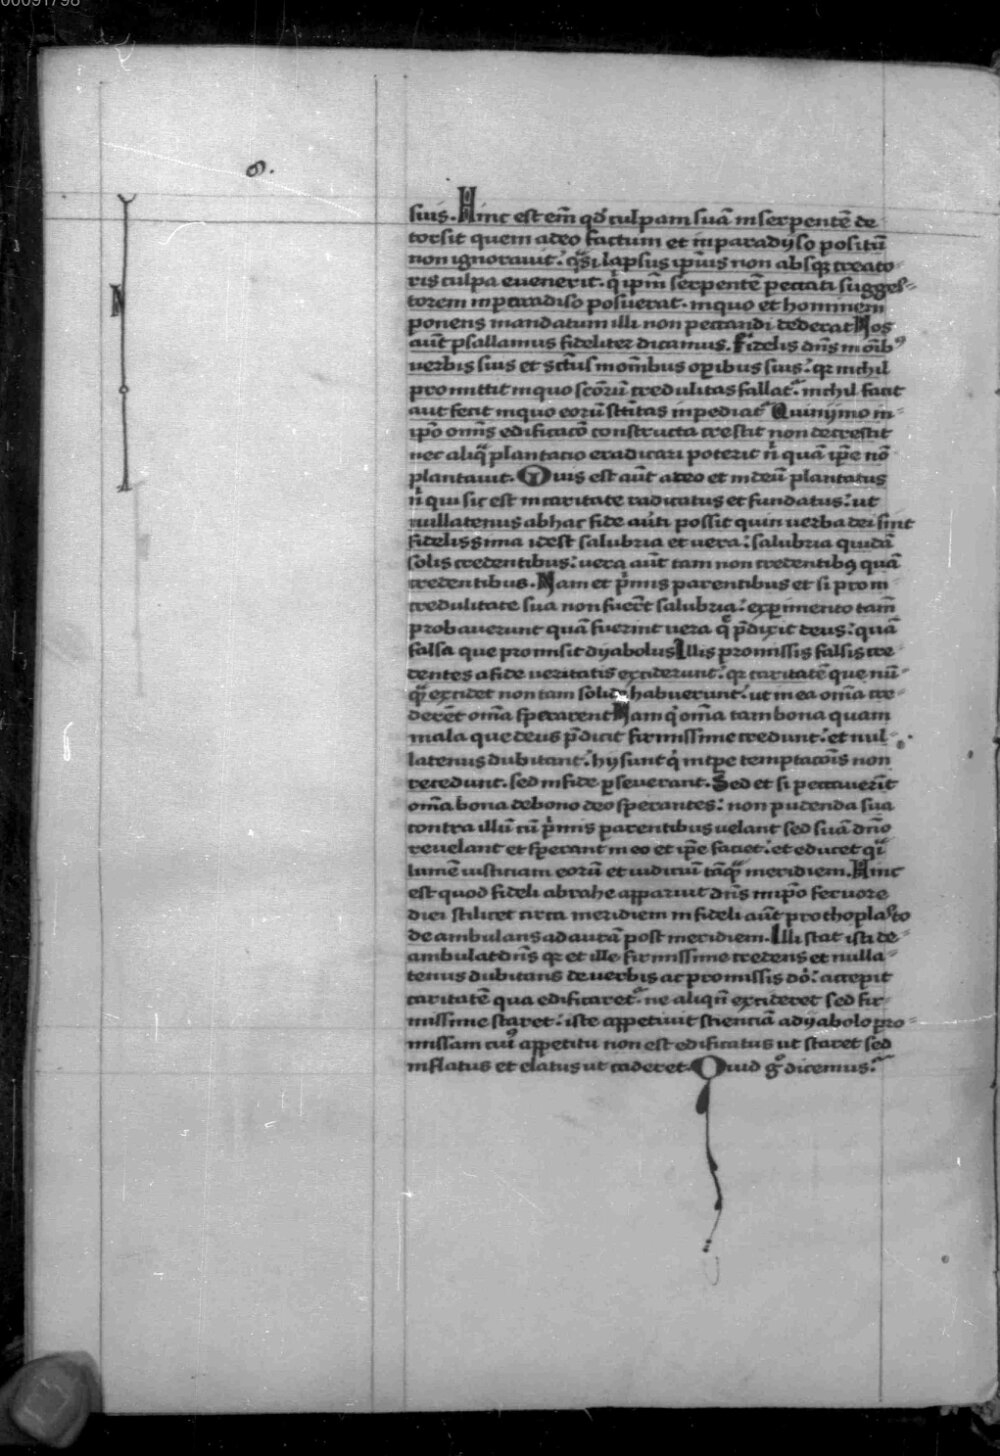 00091798
8.
suis. Hinc est em̄ qď culpam suā in serpentē de
torsit quem a deo factum et in paradyso positū
non ignorauit: q̄si lapsus ipīus non absqꝫ creato-
ris culpa euenerit. q̇ ipm̄ serpentē peccati sugges-
torem in paradiso posuerat. in quo et hominem
ponens mandatum illi non peccandi dederat Nos
aūt psallamus fideliter dicamus. Fidelis dn̄s in oīb⁹
uerbis suis et sctūs in om̄ibus oꝑibus suis: qꝛ nichil
promittit in quo scōrū credulitas fallat᷑: nichil facit
aut fecit in quo eorū sctītas inpediat᷑ Quinijmo in-
ipō om̄is edificacō constructa crescit non decrescit
nec aliq̄ plantacio eradicari poterit n̄ quā ip̄e nō
plantauit. Quis est aūt a deo et in deū plantatus
n̄ qui sic est in caritate radicatus et fundatus: ut
nullatenus ab hac fide auēti possit quin uerba dei sint
fidelissima id est salubria et uera: salubria quidā
solis credentibus: uera aūt tam non credentibꝰ quā
credentibus. Nam et p̄mis parentibus et si pro in-
credulitate sua non fuer̄t salubria: exꝑimento tam̄
probauerunt quā fuerint uera q̄ p̄dixit deus: quā
falsa que promisit dyabolus Illis promissis falsis cre-
dentes a fide ueritatis exciderunt: qꝛ caritatē que nū-
q̄ excidet non tam solide habuerunt: ut in ea om̄ia cre-
derēt om̄ia sperarent Nam q̇ om̄ia tam bona quam
mala que deus p̄dicit firmissime credunt: et nul-
latenus dubitant: hy sunt q̇ in tp̄e temptacōis non
recedunt. sed in fide ꝑseuerant. Sed et si peccauerīt
om̄ia bona de bono deo sperantes: non pudenda sua
contra illū cū p̄mis parentibus uelant sed suā dn̄o
reuelant et sperant in eo et ip̄e faciet: et educet q̄i
lumē iusticiam eorū et iudiciū tāq̄ meridiem. Hinc
est quod fideli abrahe apparuit dn̄s in ipō feruore
diei scilicet circa meridiem in fideli aūt prothoplasto
deambulans ad aurā post meridiem. Illi stat isti de-
ambulat dn̄s qꝛ et ille firmissime credens et nulla-
tenus dubitans de uerbis ac promissis dō: accepit
caritatē qua edificaret᷑: ne aliqn̄ excideret sed fir-
missime staret: iste appetiuit scienciā a dyabolo pro-
missam cui᷒ appetitu non est edificatus ut staret sed
inflatus et elatus ut caderet. Quid g̊ dicemus: